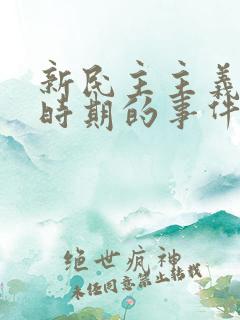 新民主主義
時期的事件
绝世疯神
未经同意禁止转载